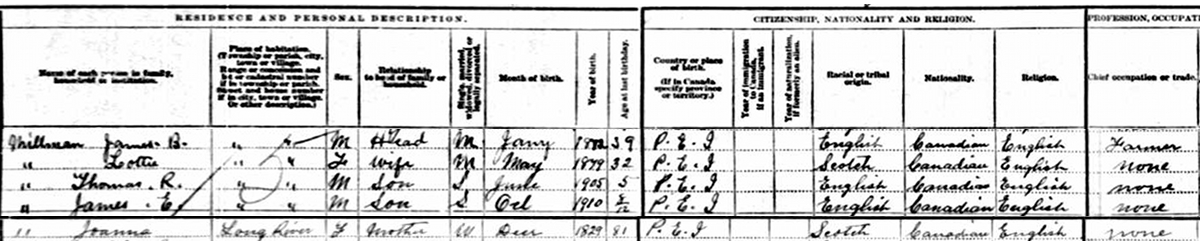 RESIDENCE AND PERSONAL DESCRIPTION. CITIZENSHIP, NATIONALITY AND RELIGION. PROFESSION, OCCUPAT
Name of each person in family, household or institution. Place of habitation. (Township or parish, city, town or village. Sex. Relationship to head of family or household. Single, married, widowed, divorced or legally separated. Month of birth. Year of birth. Age at last birthday. Country or place of birth. (If in Canada specify province or territory.) Year of immigration to Canada, if an immigrant. Year of naturalization, if formerly an alien. Racial or tribal origin. Nationality. Religion. Chief occupation or trade.
Millman James B. " " M Head M Jany 39 P. E. I English Canadian English Farmer
" Lottie " " F Wife M May 1879 32 P. E. I Scotch Canadian English none
" Thomas. R. " " M Son S June 1905 5 P. E. I English Canadian English none
" James. E. " " M Son S Oct 1910 8/12 P. E. I English Canadian English none
" Joanna Long River F Mother W Dec 1829 81 P. E. I Scotch Canadian English none